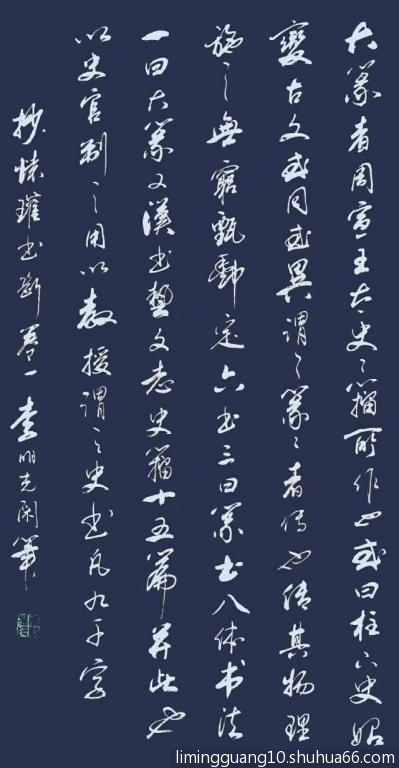 大篆者周宣王太史々籀所作也或曰柱下史始
變古文或同或異謂之篆々者傳也傳其物理
施之無窮甄酆定六書三曰篆書八体书法
一曰大篆又漢書藝文志史籀十五篇并此也
以史官制之用以教授謂之史書凡九千字
抄懷瓘書斷卷一 李明光閑筆
limingguang10.shuhua66.com